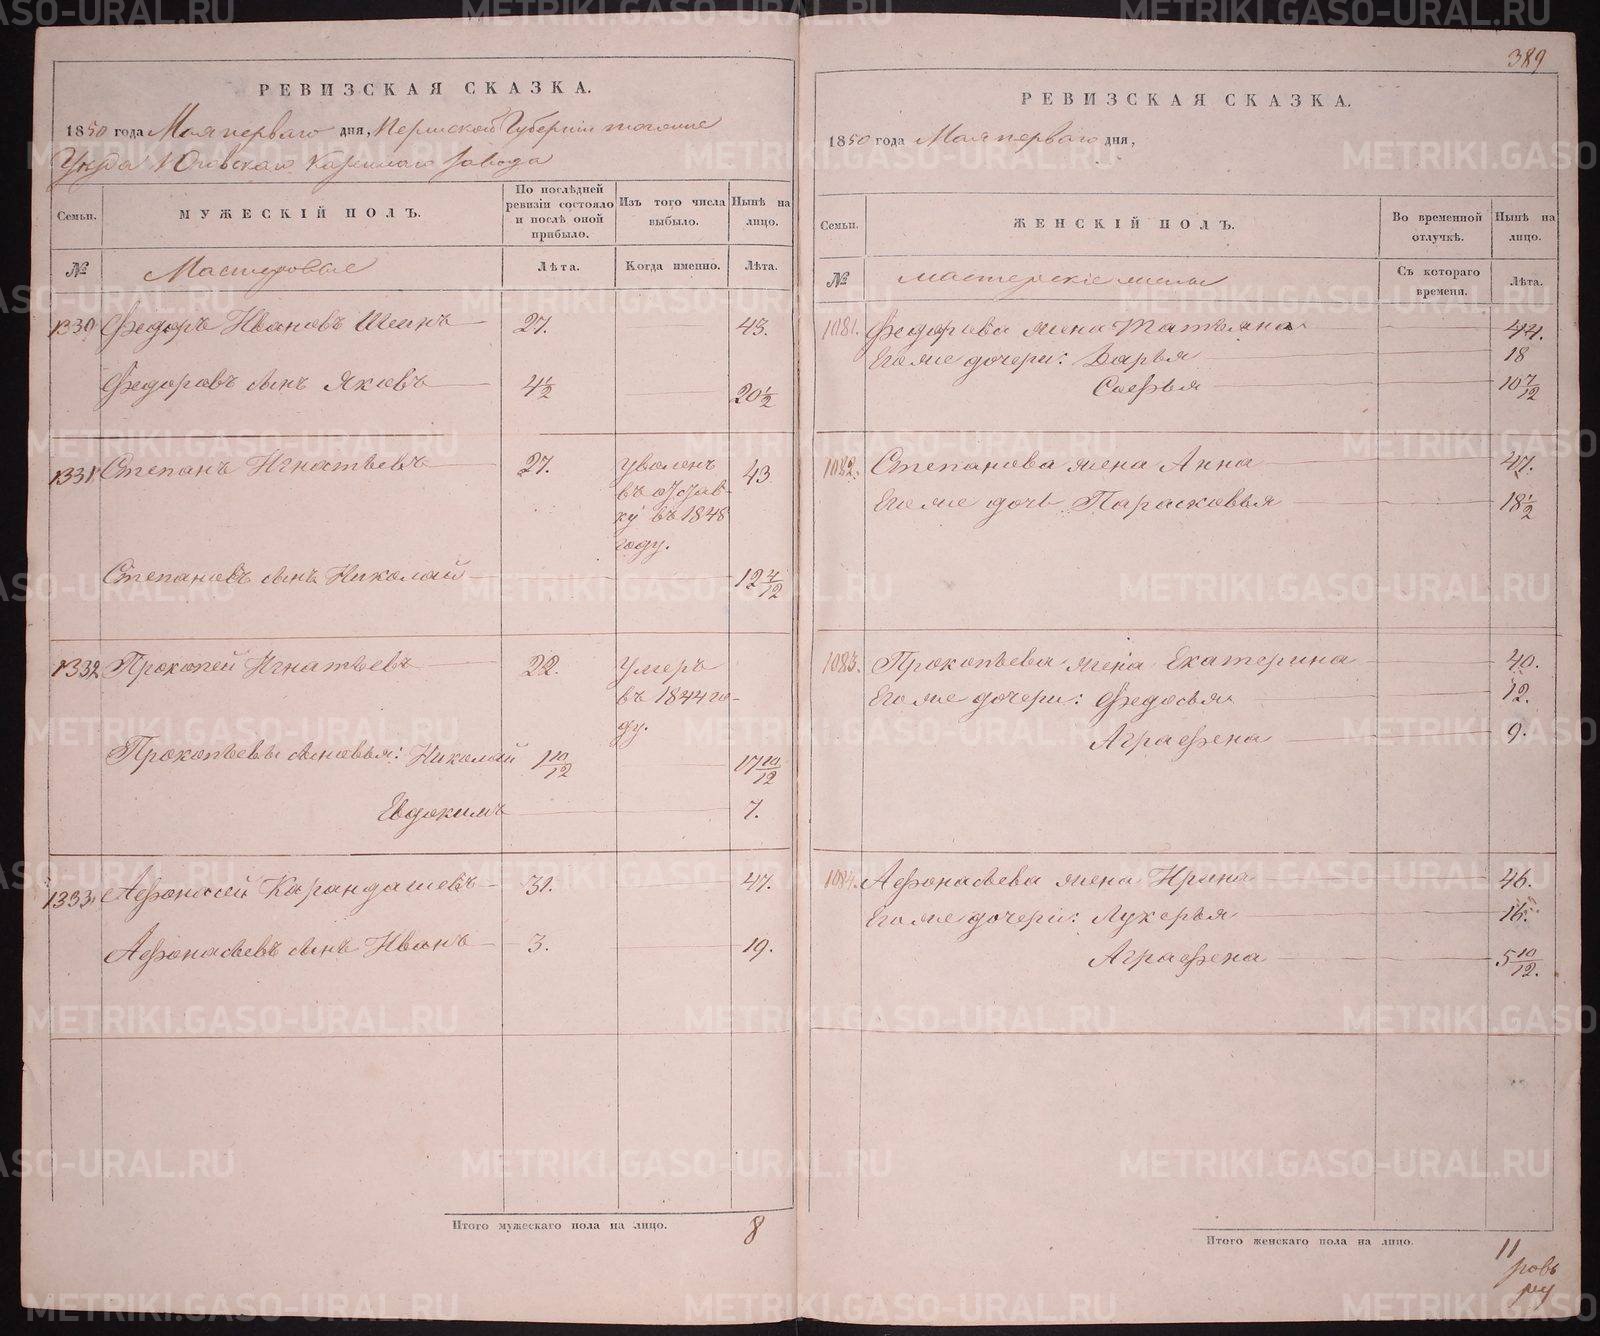 РЕВИЗСКАЯ СКАЗКА.
1850 года Мая перваго дня, Пермской Губернии
Уезда Юговскаго Казеннаго завода
Семьи.
МУЖЕСКІЙ ПОЛЪ.
По послѣдней ревизіи состояло и послѣ оной прибыло.
Изъ того числа выбыло.
Нынѣ на лицо.
№
Мастеровые
Лѣта.
Когда именно.
Лѣта.
1330 Федоръ Ивановъ Шеинъ 27. 43.
Федоровъ сынъ Яковъ 4½ 20½
1331 Степанъ Игнатьевъ 27. уволенъ въ отставку въ 1848 году. 43
Степановъ сынъ Николай 12 4/12
1332 Прокопей Игнатьевъ 22. умеръ въ 1844 году.
Прокопьевы сыновья: Николай 1 10/12 17 10/12
Евдокимъ 7.
1333 Афонасей Карандашевъ 31. 47.
Афонасьевъ сынъ Иванъ 3. 19.
Итого мужескаго пола на лицо. 8
389
РЕВИЗСКАЯ СКАЗКА.
1850 года Мая перваго дня,
Семьи.
ЖЕНСКІЙ ПОЛЪ.
Во временной отлучкѣ.
Нынѣ на лицо.
№
мастерскіе жены
Съ котораго времени.
Лѣта.
1081. Федорова жена Татьяна 44.
Его же дочери: Дарья 18
Софья 10 7/12
1082. Степанова жена Анна 47.
Его же дочь Парасковья 18½
1083. Прокопьева жена Екатерина 40.
Его же дочери: Федосья 12.
Аграфена 9.
1084. Афонасьева жена Ирина 46.
Его же дочери: Лукерья 16.
Аграфена 5 10/12.
Итого женскаго пола на лицо. 11
METRIKI.GASO-URAL.RU